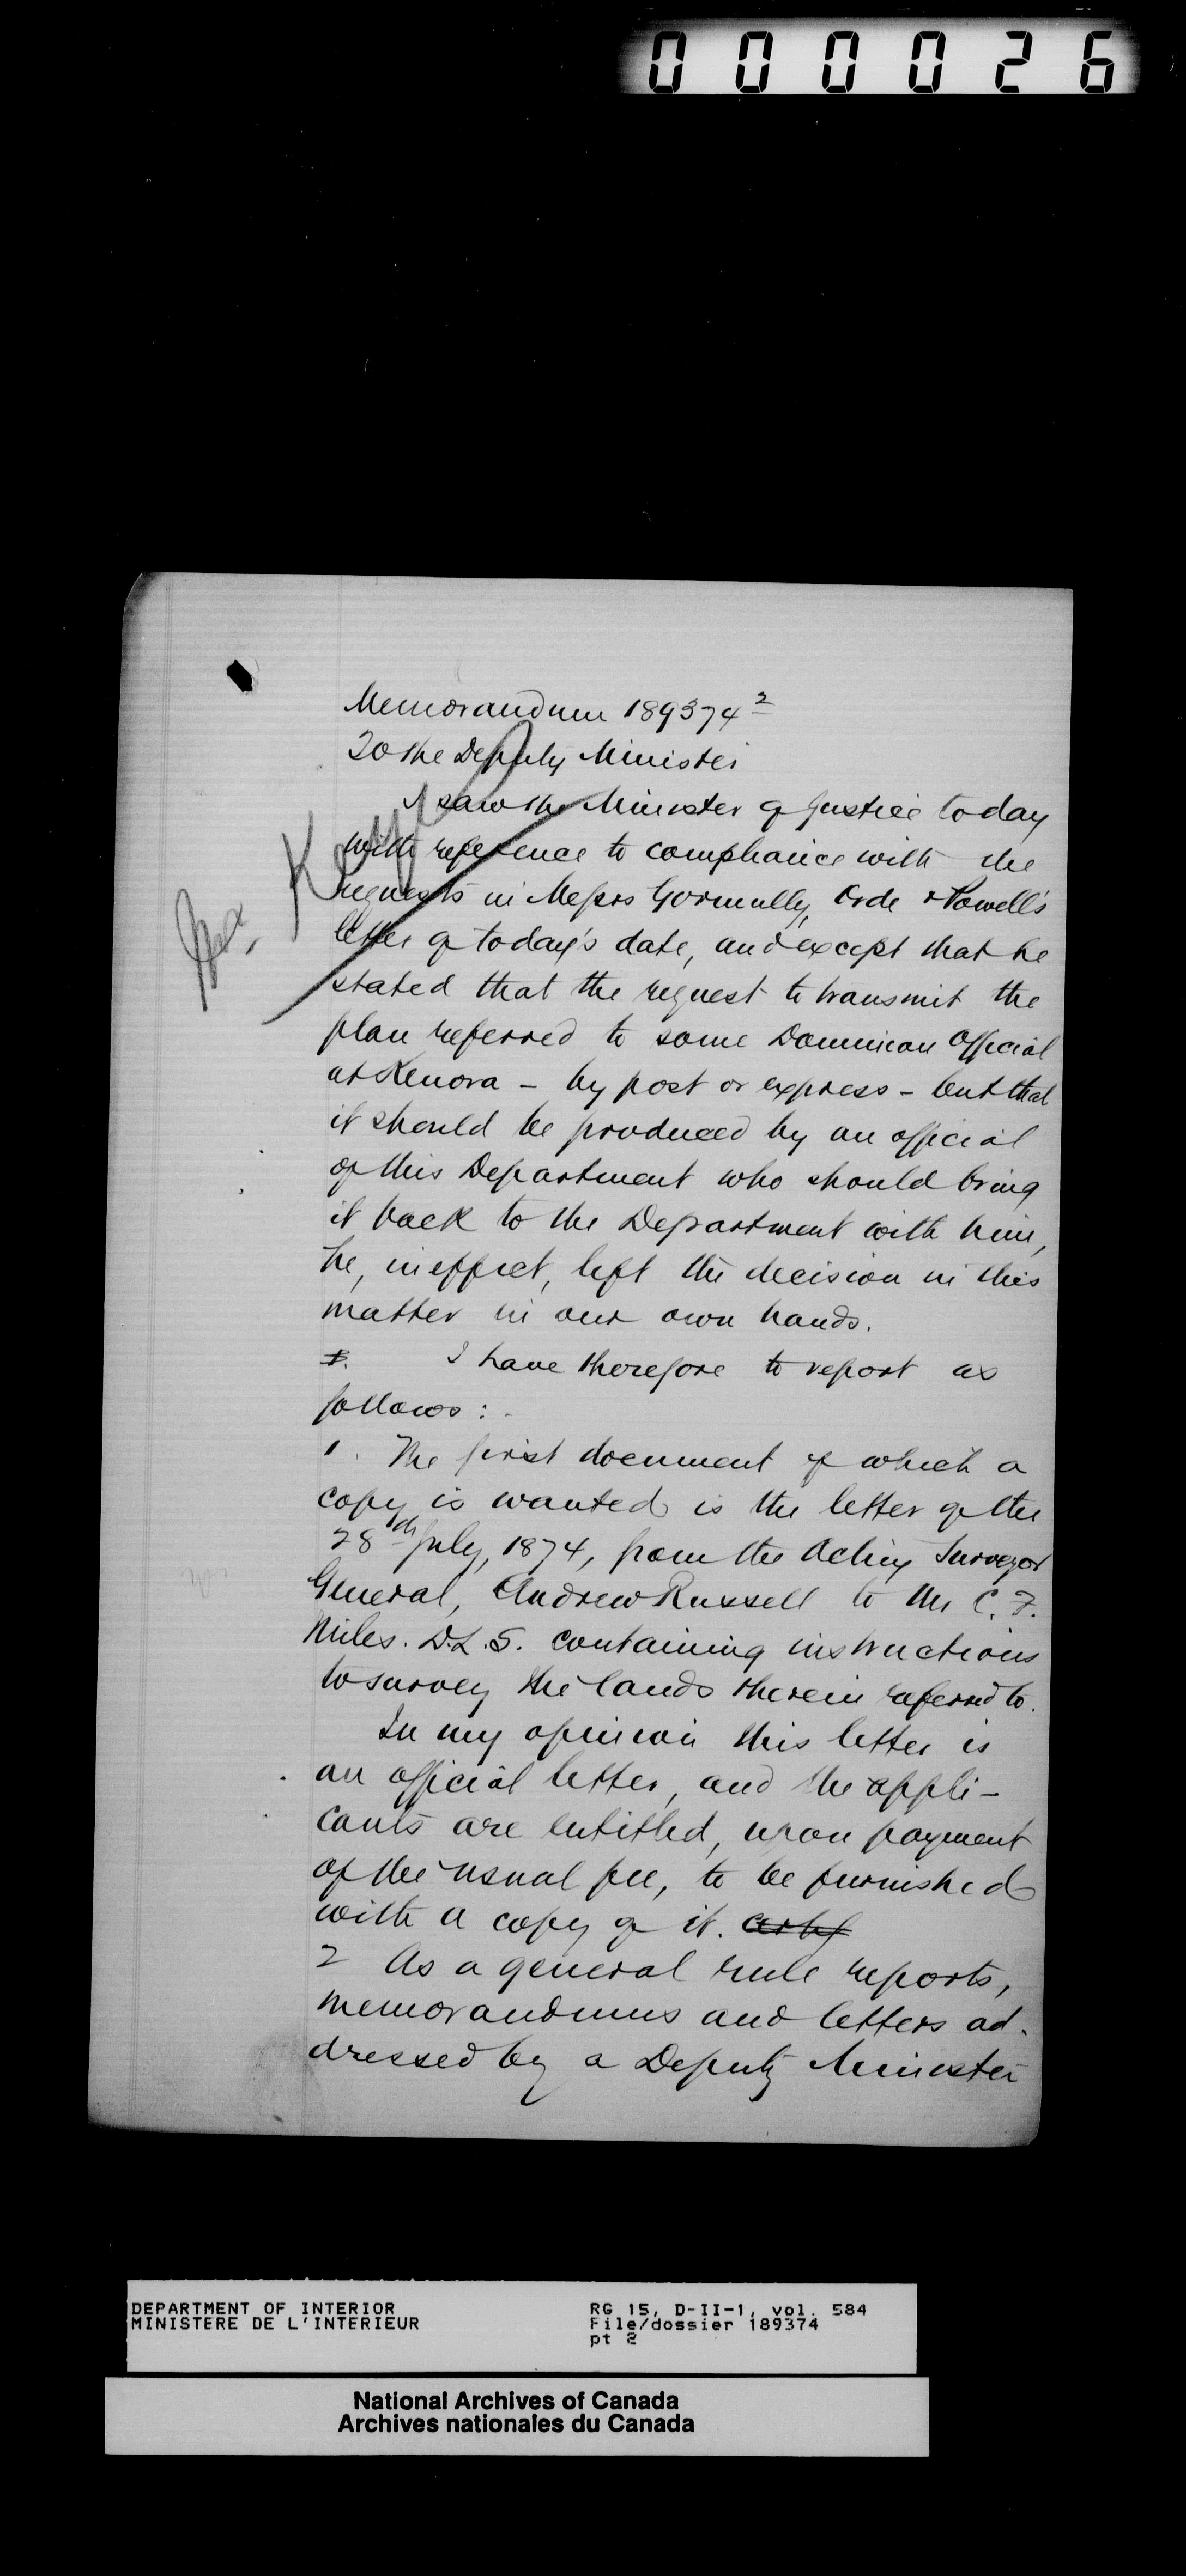 000026
Memorandum 189374 2
To the Deputy Minister
I saw the Minister of Justice today
with reference to compliance with the
requests in Messrs Gormully, Orde & Powell's
letter of today's date, and except that he
stated that the request to transmit the
plan referred to some Dominion Official
at Kenora - by post or express - but that
it should be produced by an official
of this Department who should bring
it back to the Department with him,
he, in effect, left the decision in this
matter in our own hands.
I have therefore to report as
follows:
1. The first document of which a
copy is wanted is the letter of the
28th July, 1874, from the Acting Surveyor
General, Andrew Russell to Mr C. F.
Miles. D.L.S. containing instructions
to survey the lands therein referred to.
In my opinion this letter is
an official letter, and the appli-
cants are entitled, upon payment
of the usual fee, to be furnished
with a copy of it.
2 As a general rule reports,
memorandums and letters ad-
dressed by a Deputy Minister
DEPARTMENT OF INTERIOR
MINISTERE DE L'INTERIEUR
RG 15, D-II-1, vol. 584
File/dossier 189374
pt 2
National Archives of Canada
Archives nationales du Canada